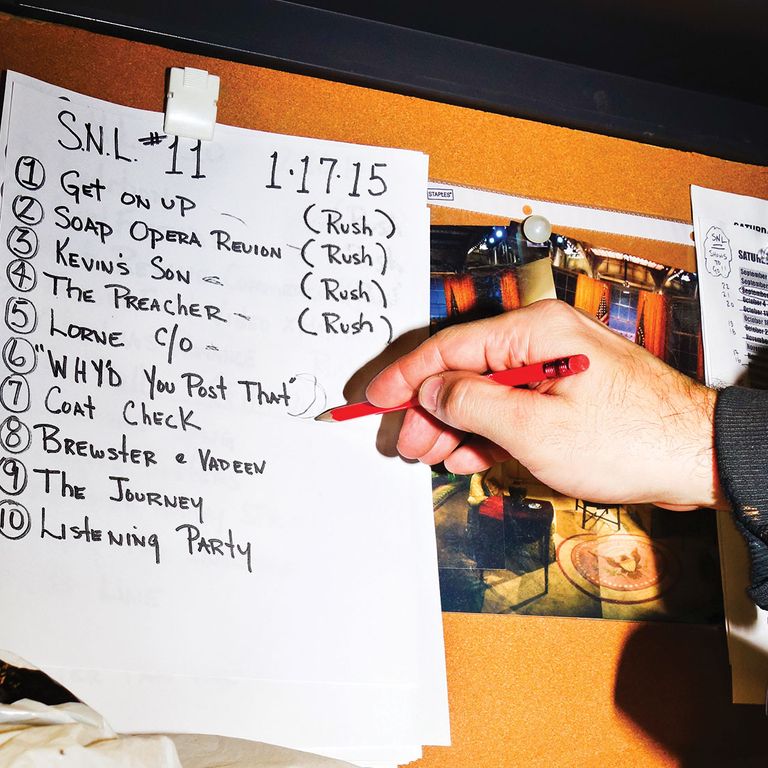 S.N.L. #11 1·17·15
① GET ON UP (Rush)
② SOAP OPERA REUION (Rush)
③ KEVIN'S SON (Rush)
④ THE PREACHER (Rush)
⑤ LORNE C/O
⑥ "WHY'D YOU POST THAT"
⑦ COAT CHECK
⑧ BREWSTER & VADEEN
⑨ THE JOURNEY
⑩ LISTENING PARTY
STAPLES
SNL
SHOWS
TO
GO!
SATURD
SATURD
September
September
October 4